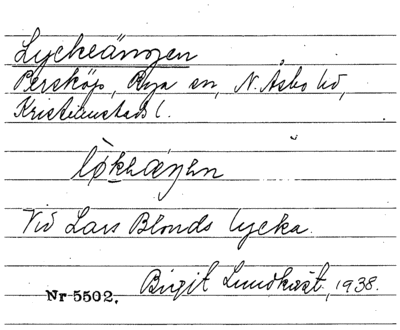 Lyckeängen
Persköp, Rya sn, N. Åsbo hd,
Kristianstads l.
løkeæŋen
Vid Lars Blonds lycka.
Birgit Lundkvist, 1938.
Nr 5502.